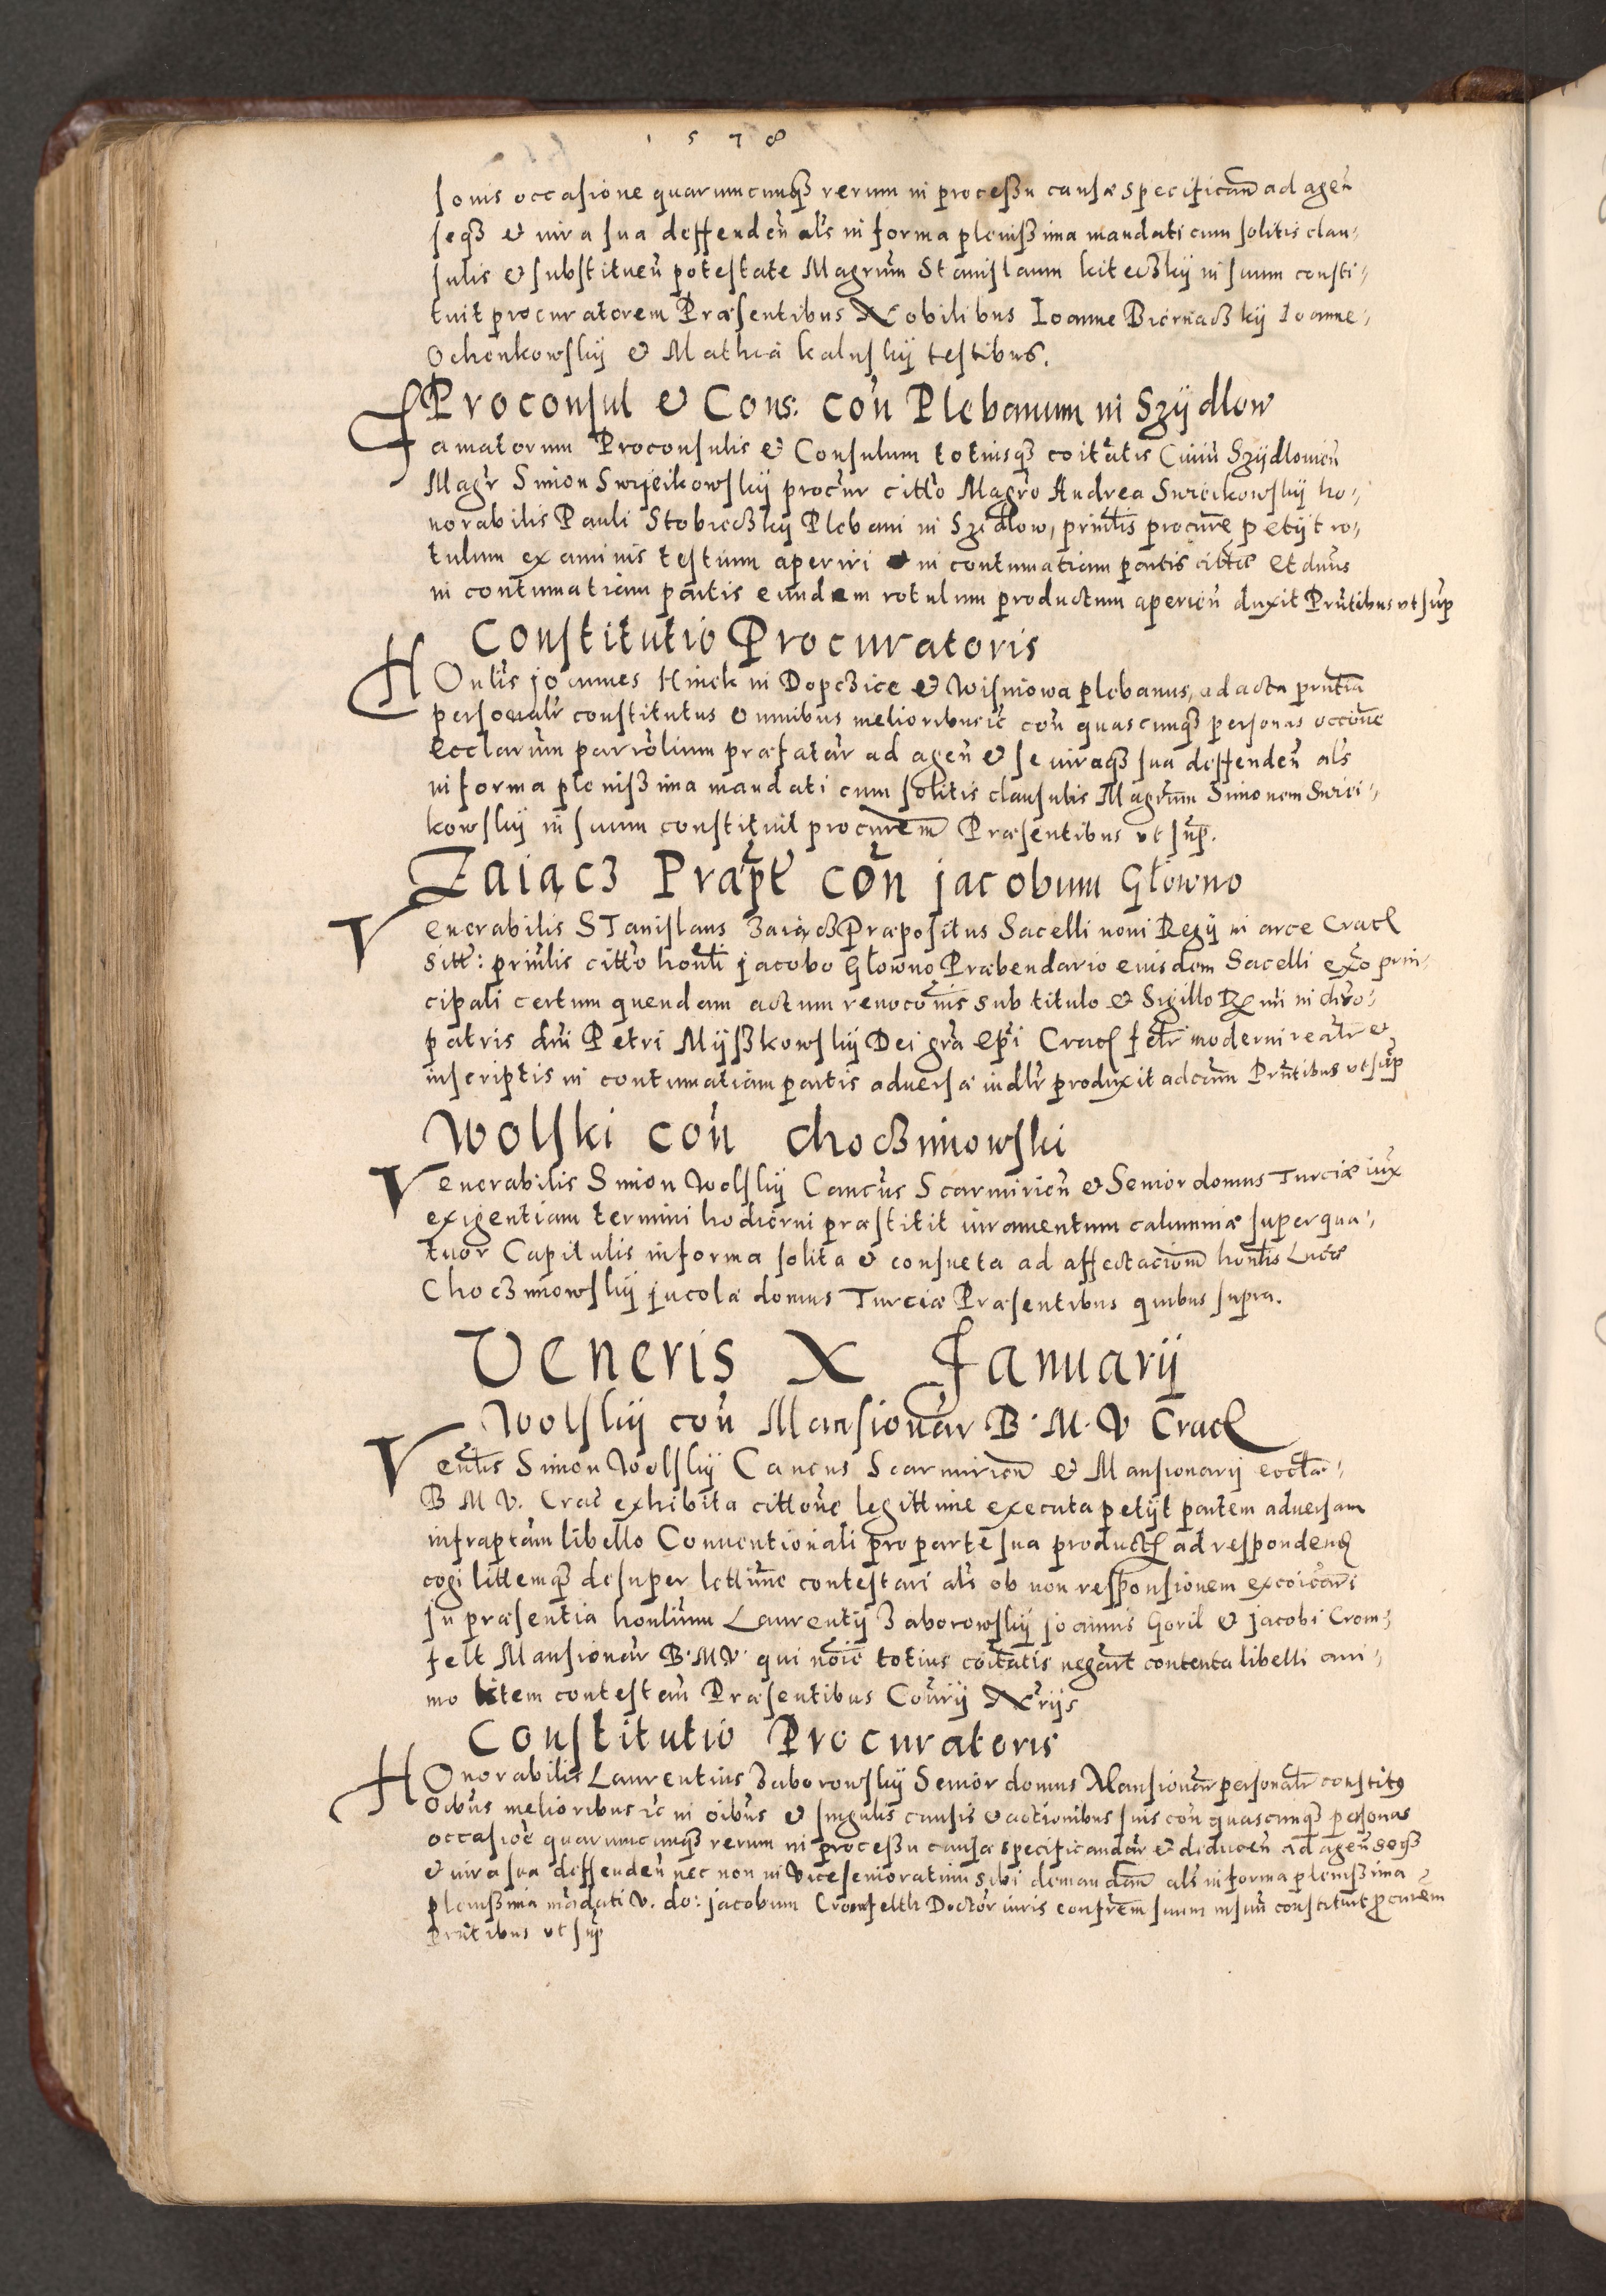 1 5 7 8
sonis occasione quarumcunqз rerum in processu causæ specifican̄ ad agen̄
seqз & iura sua deffenden̄ als in forma plenissima mandati cum solitis clau⸗
sulis & substituen̄ potestate Magrum Stanislaum kiteczkÿ in suum consti⸗
tuit procuratorem Præsentibus Nobilibus Ioanne BiernaczkÿIoanne⸗
OchenkowskÿMathia kaluskÿ testibus.
Proconsul & Cons. con̄ Plebanum in Szÿdlow
Famatorum Proconsulis & Consulum totiusqз coitatis Ciuiū Szÿdlouien̄
Magr Simon Swÿeikowskÿ procur citto Magro Andrea Swieikowskÿ ho⸗
norabilis Pauli Stobieczkÿ Plebani in Szidlow, prinlis procure petijt ro⸗
tulum examinis testium aperiri & in contumatiam partis cittæ Et dnus
in contumatiam partis eundem rotulum productum aperien̄ duxit Prntibus vt sup
Constitutio Procuratoris
HOnlis joannes Hinek in Dopczice & Wisniowa plebanus, ad acta prntia
personalr constitutus omnibus melioribus ic con̄ quascunqз personas occione
Ecclarum parrolium præfatar ad agen̄ & se iuraqз sua deffenden̄ als
in forma plenissima mandati cum solitis clausulis Magrum Simonem Swiei⸗
kowskÿ in suum constituit procurem Præsentibus vt sup.
Zaiącz Præpt con̄ jacobum Głowno
Venerabilis STanislaus Zaiącz Præpositus Sacelli noui Regÿ in arce Crac
sitt: prinlis citto honli jacobo Głowno Præbendario eiusdem Sacelli exo prin⸗
cipali certum quendam actum reuoconis sub titulo & Sigillo Rmi in chro⸗
patris dni Petri Mÿszkowskÿ Dei gra Epi Crac fctr moderni realr &
inscriptis in contumatiam partis aduersæ iudlr produxit ad cām Prntibus vt sup
Wolski con̄ Choczimowski
Venerabilis Simon Wolskÿ Cancus Scarmirien̄ & Senior domus Turciæ iux
exigentiam termini hodierni præstitit iuramentum calumniæ super qua⸗
tuor Capitulis in forma solita & consueta ad affectacionem honlis Lucæ
Choczimowskÿ jncolæ domus Turciæ Præsentibus quibus supra.
Veneris X Januarij
Wolskÿ con̄ Mansionar B. M. V Crac
Venlis Simon Wolskÿ Cancus Scarmirien̄ & Mansionarij ecclæ⸗
B M V. Crac exhibita cittone legittime executa petijt partem aduersam
infraptam libello Conuentionali pro parte sua product ad respondend
cogi littemqз desuper lettime contestari als ob non responsionem excoicari
Jn præsentia honlium Laurentÿ Zaborowskÿ joannis Goril & jacobi Crom⸗
felt Mansionar B. M V. qui noie totius coitatis negart contenta libelli ani⸗
mo litem contestan̄ Præsentibus Courij Nrijs
Constitutio Procuratoris
HOnorabilis Laurentius Zaborowskÿ Senior domus Mansionar personalr constitꝰ
Oibus melioribus ic in oibus & singulis causis & actionibus suis con̄ quascunqз personas
occasioe quarumcunqз rerum in processu causæ specificandar & deducen̄ ad agen̄ seqз
& iura sua deffenden̄ nec non in Viceseniоratum sibi demandan̄ als in forma plenissima
plenissima mādati V. do: jacobum Cromfelth Doctor iuris confrem suum insuū constituit procurem
Prntibus vt sup